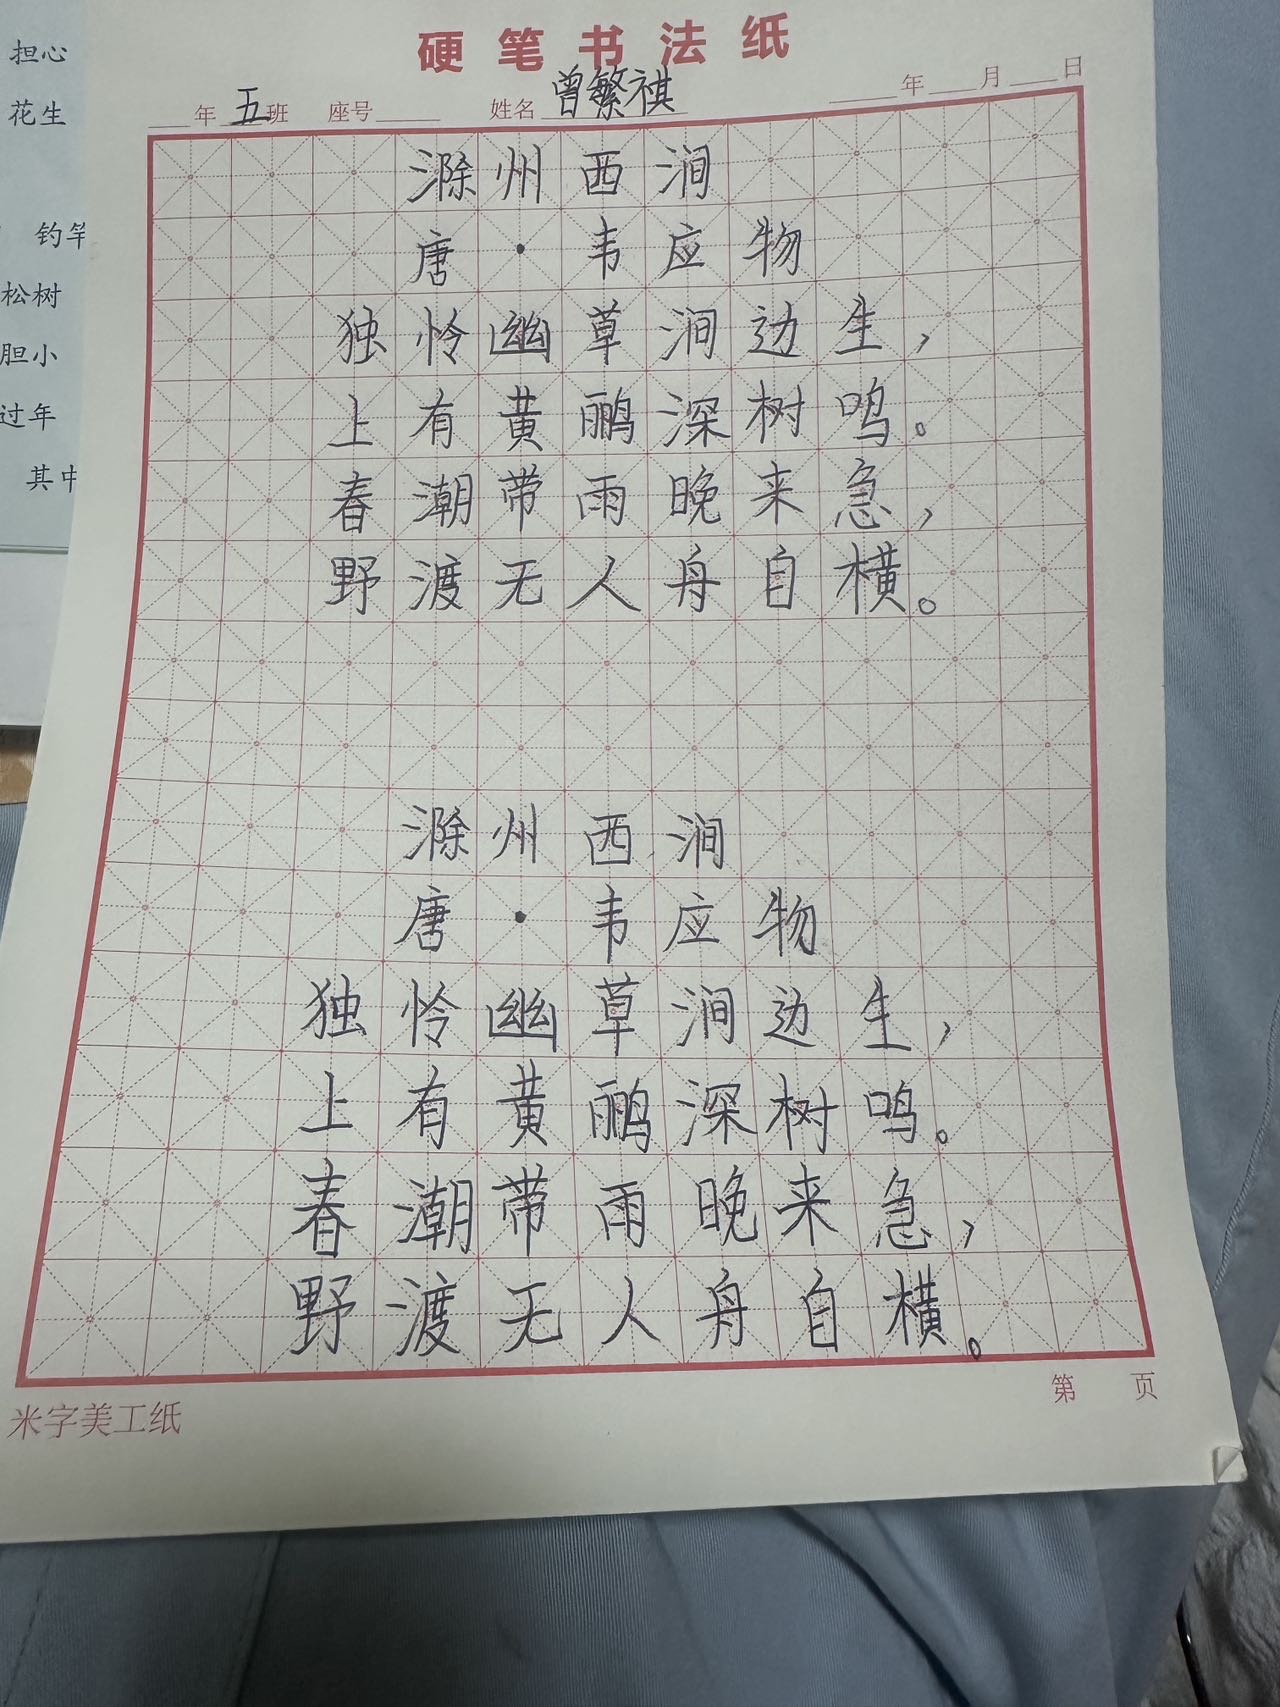 担心
花生
钓竿
松树
胆小
过年
其中
硬笔书法纸
年 五班 座号 姓名 曾繁祺 年 月 日
滁州西涧
唐·韦应物
独怜幽草涧边生，
上有黄鹂深树鸣。
春潮带雨晚来急，
野渡无人舟自横。
滁州西涧
唐·韦应物
独怜幽草涧边生，
上有黄鹂深树鸣。
春潮带雨晚来急，
野渡无人舟自横。
米字美工纸
第 页